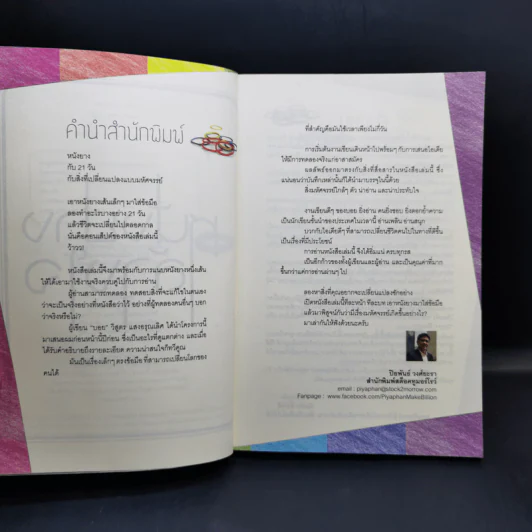 คำนำสำนักพิมพ์
หนังยาง
กับ 21 วัน
กับสิ่งที่เปลี่ยนแปลงแบบมหัศจรรย์
เอาหนังยางเส้นเล็กๆ มาใส่ข้อมือ
ลองทำอะไรบางอย่าง 21 วัน
แล้วชีวิตจะเปลี่ยนไปตลอดกาล
นั่นคือคอนเส็ปต์ของหนังสือเล่มนี้
ว้าวว!
หนังสือเล่มนี้จึงมาพร้อมกับการแนบหนังยางหนึ่งเส้น
ให้ได้เอามาใช้งานจริงควบคู่ไปกับการอ่าน
ผู้อ่านสามารถทดลอง ทดสอบสิ่งที่จะแก้ไขในตนเอง
ว่าจะเป็นจริงอย่างที่หนังสือว่าไว้ อย่างที่ผู้ทดลองคนอื่นๆ บอก
ว่าจริงหรือไม่?
ผู้เขียน "บอย" วิสูตร แสงอรุณเลิศ ได้นำโครงการนี้
มาเสนอผมก่อนหน้านี้ปีก่อน ซึ่งเป็นอะไรที่ดูแตกต่าง และเมื่อ
ได้รับคำอธิบายถึงรายละเอียด ความน่าสนใจก็ทวีคูณ
มันเป็นเรื่องเล็กๆ ตรงข้อมือ ที่สามารถเปลี่ยนโลกของ
คนได้
ที่สำคัญคือมันใช้เวลาเพียงไม่กี่วัน
การเริ่มต้นงานเขียนเดินหน้าไปพร้อมๆ กับการเสนอไอเดีย
ให้มีการทดลองจริงแก่อาสาสมัคร
ผลลัพธ์ออกมาตรงกับสิ่งที่สื่อสารในหนังสือเล่มนี้ ซึ่ง
แน่นอนว่าบันทึกเหล่านั้นก็ได้นำมาบรรจุในนี้ด้วย
สิ่งมหัศจรรย์ใกล้ๆ ตัว น่าอ่าน และน่าประทับใจ
งานเขียนดีๆ ของบอย ยิ่งอ่าน คนยิ่งชอบ ยิ่งตอกย้ำความ
เป็นนักเขียนชั้นนำของประเทศในเวลานี้ อ่านเพลิน อ่านสนุก
บวกกับไอเดียดีๆ ที่สามารถเปลี่ยนชีวิตคนไปในทางที่ดีขึ้น
เป็นเรื่องที่มีประโยชน์
การอ่านหนังสือเล่มนี้ จึงได้อิ่มเอม ครบทุกรส
เป็นอีกก้าวของทั้งผู้เขียนและผู้อ่าน และเป็นคุณค่าที่มาก
ขึ้นกว่าแค่การอ่านผ่านๆ ไป
ลองหาสิ่งที่คุณอยากจะเปลี่ยนแปลงซักอย่าง
เปิดหนังสือเล่มนี้ทีละหน้า ทีละบท เอาหนังยางมาใส่ข้อมือ
แล้วมาพิสูจน์กันว่ามีเรื่องมหัศจรรย์เกิดขึ้นอย่างไร?
มาเล่ากันให้ฟังด้วยนะครับ
ปิยพันธ์ วงศ์ยะรา
สำนักพิมพ์สต็อคทูมอร์โรว์
email : piyaphan@stock2morrow.com
Fanpage : www.facebook.com/PiyaphanMakeBillion